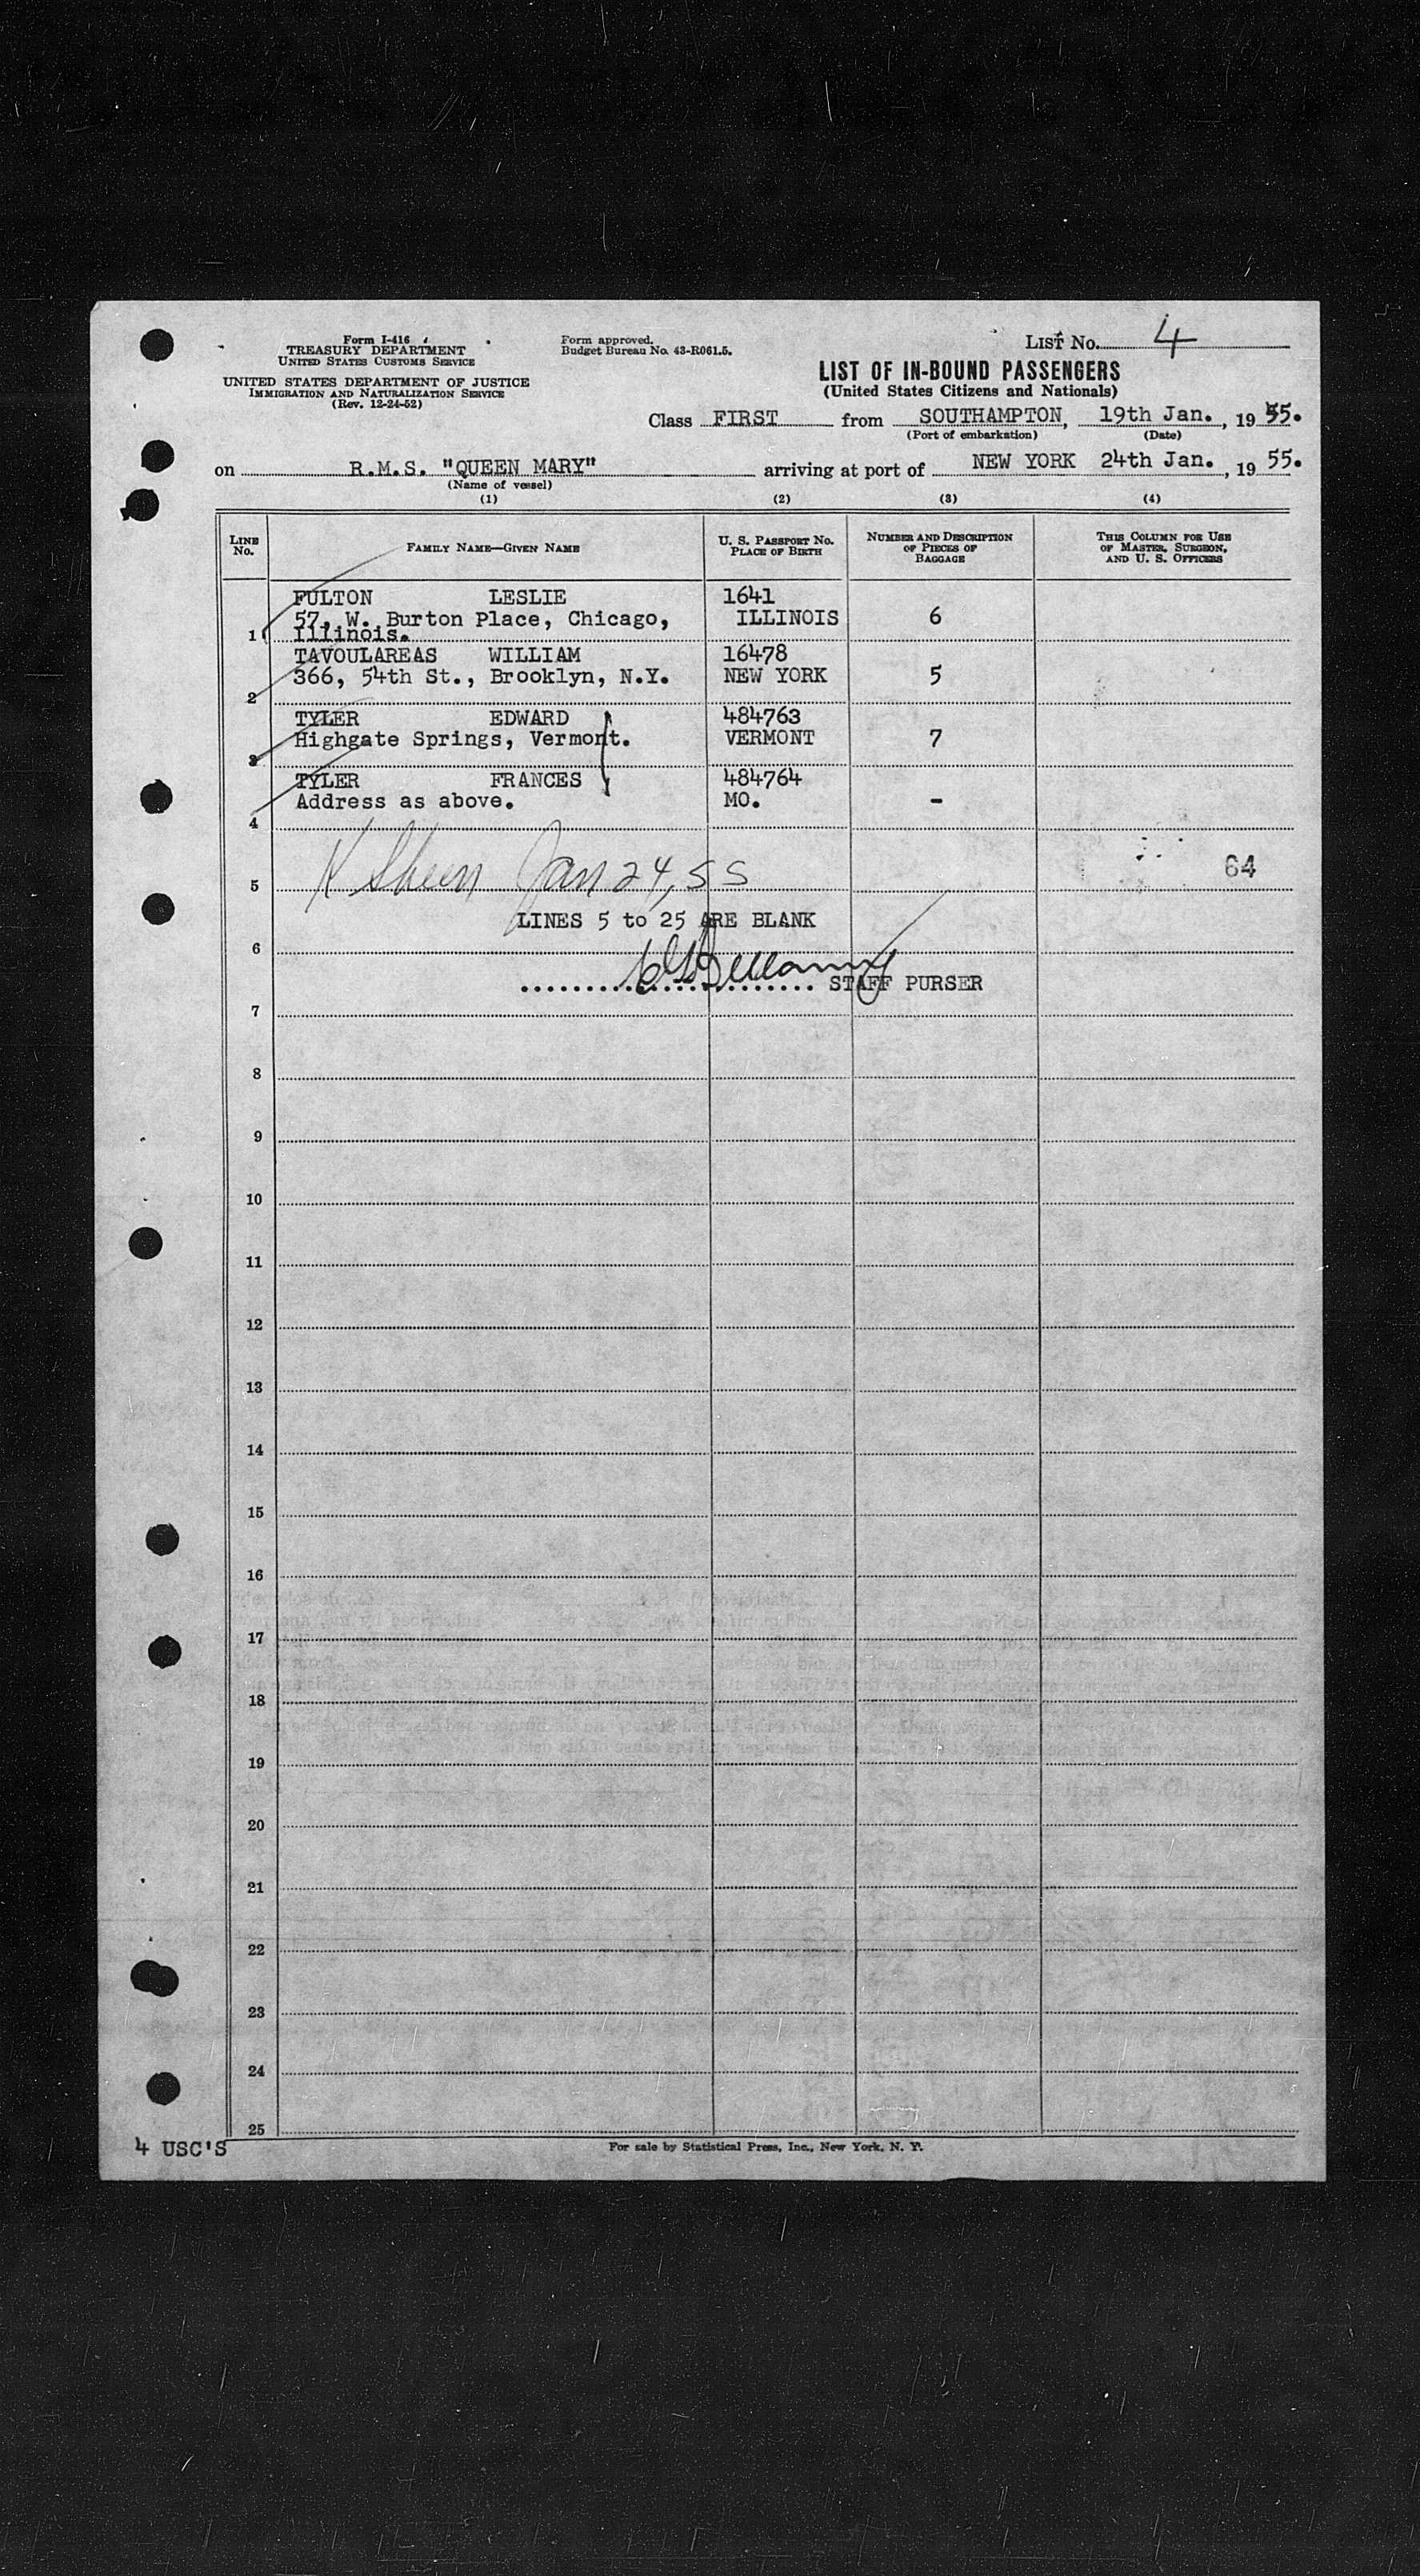 Form I-416
TREASURY DEPARTMENT
UNITED STATES CUSTOMS SERVICE
UNITED STATES DEPARTMENT OF JUSTICE
IMMIGRATION AND NATURALIZATION SERVICE
(Rev. 12-24-52)
Form approved.
Budget Bureau No. 43-R061.5.
LIST No. 4
LIST OF IN-BOUND PASSENGERS
(United States Citizens and Nationals)
Class FIRST from SOUTHAMPTON, 19th Jan., 19 55.
(Port of embarkation) (Date)
on R.M.S. "QUEEN MARY" arriving at port of NEW YORK 24th Jan., 19 55.
(Name of vessel)
(1) (2) (3) (4)
LINE No. FAMILY NAME—GIVEN NAME U. S. PASSPORT No. PLACE OF BIRTH NUMBER AND DESCRIPTION OF PIECES OF BAGGAGE THIS COLUMN FOR USE OF MASTER, SURGEON, AND U. S. OFFICERS
FULTON LESLIE 1641
57, W. Burton Place, Chicago, ILLINOIS 6
1 Illinois.
TAVOULAREAS WILLIAM 16478
366, 54th St., Brooklyn, N.Y. NEW YORK 5
2
TYLER EDWARD 484763
Highgate Springs, Vermont. VERMONT 7
3
TYLER FRANCES 484764
Address as above. MO. -
4
Jan 24, 55 64
5
LINES 5 to 25 ARE BLANK
6
STAFF PURSER
7
8
9
10
11
12
13
14
15
16
17
18
19
20
21
22
23
24
25
4 USC'S
For sale by Statistical Press, Inc., New York, N. Y.